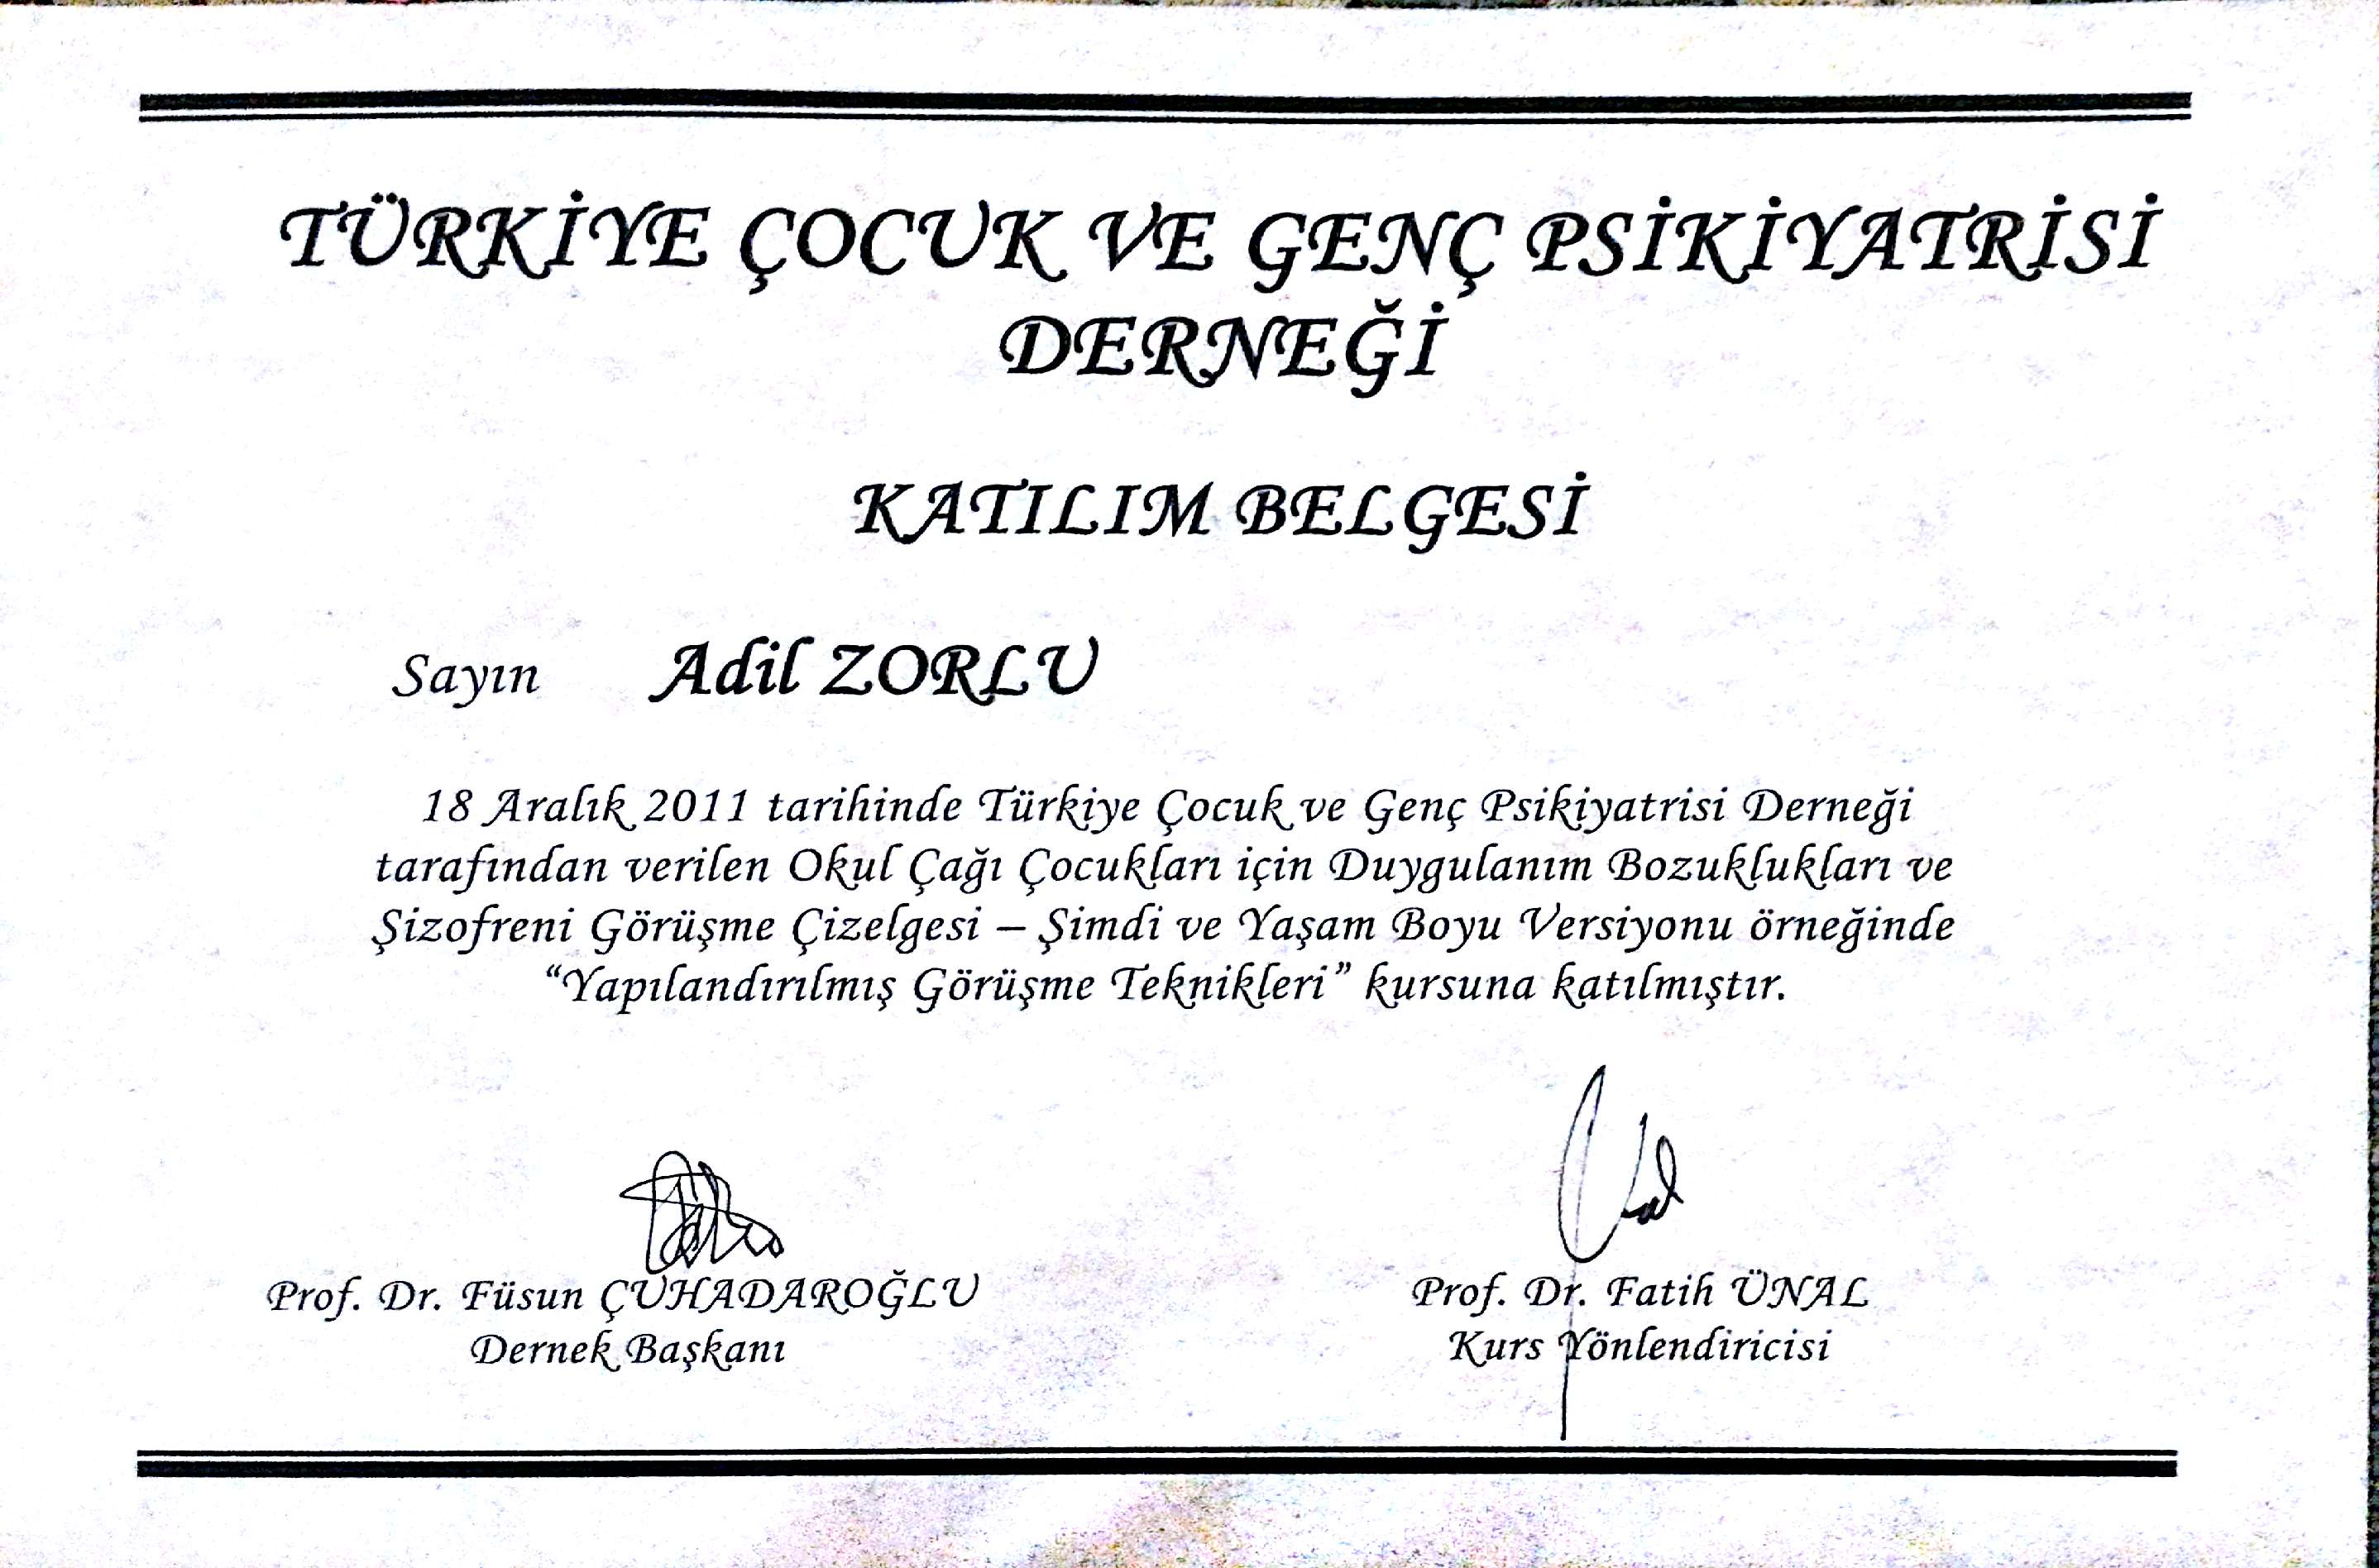 TÜRKİYE ÇOCUK VE GENÇ PSİKİYATRİSİ
DERNEĞİ
KATILIM BELGESİ
Sayın Adil ZORLU
18 Aralık 2011 tarihinde Türkiye Çocuk ve Genç Psikiyatrisi Derneği
tarafından verilen Okul Çağı Çocukları için Duygulanım Bozuklukları ve
Şizofreni Görüşme Çizelgesi – Şimdi ve Yaşam Boyu Versiyonu örneğinde
“Yapılandırılmış Görüşme Teknikleri” kursuna katılmıştır.
Prof. Dr. Füsun ÇUHADAROĞLU
Dernek Başkanı
Prof. Dr. Fatih ÜNAL
Kurs Yönlendiricisi